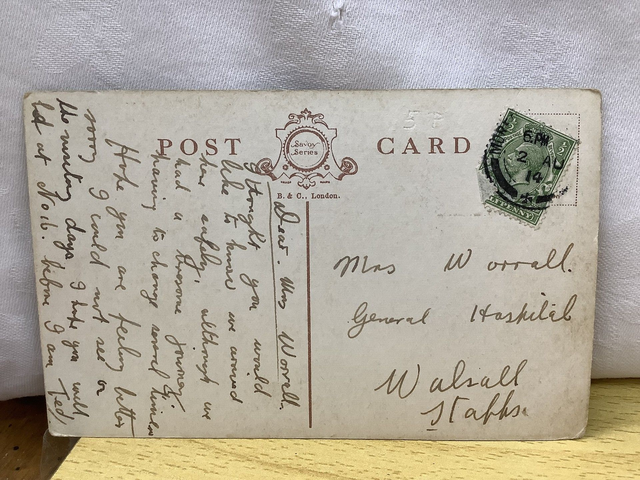 POST CARD
Savoy
Series
B. & C., London.
6 PM
2 AU
14
Mrs Worrall.
General Hospital
Walsall
Staffs.
Dear Mrs Worrall.
I thought you would
like to know we arrived
here safely, although we
had a tiresome journey.
having to change several times
Hope you are feeling better
sorry I could not see on
the visiting days I hope you will
be out at No 16. before I am